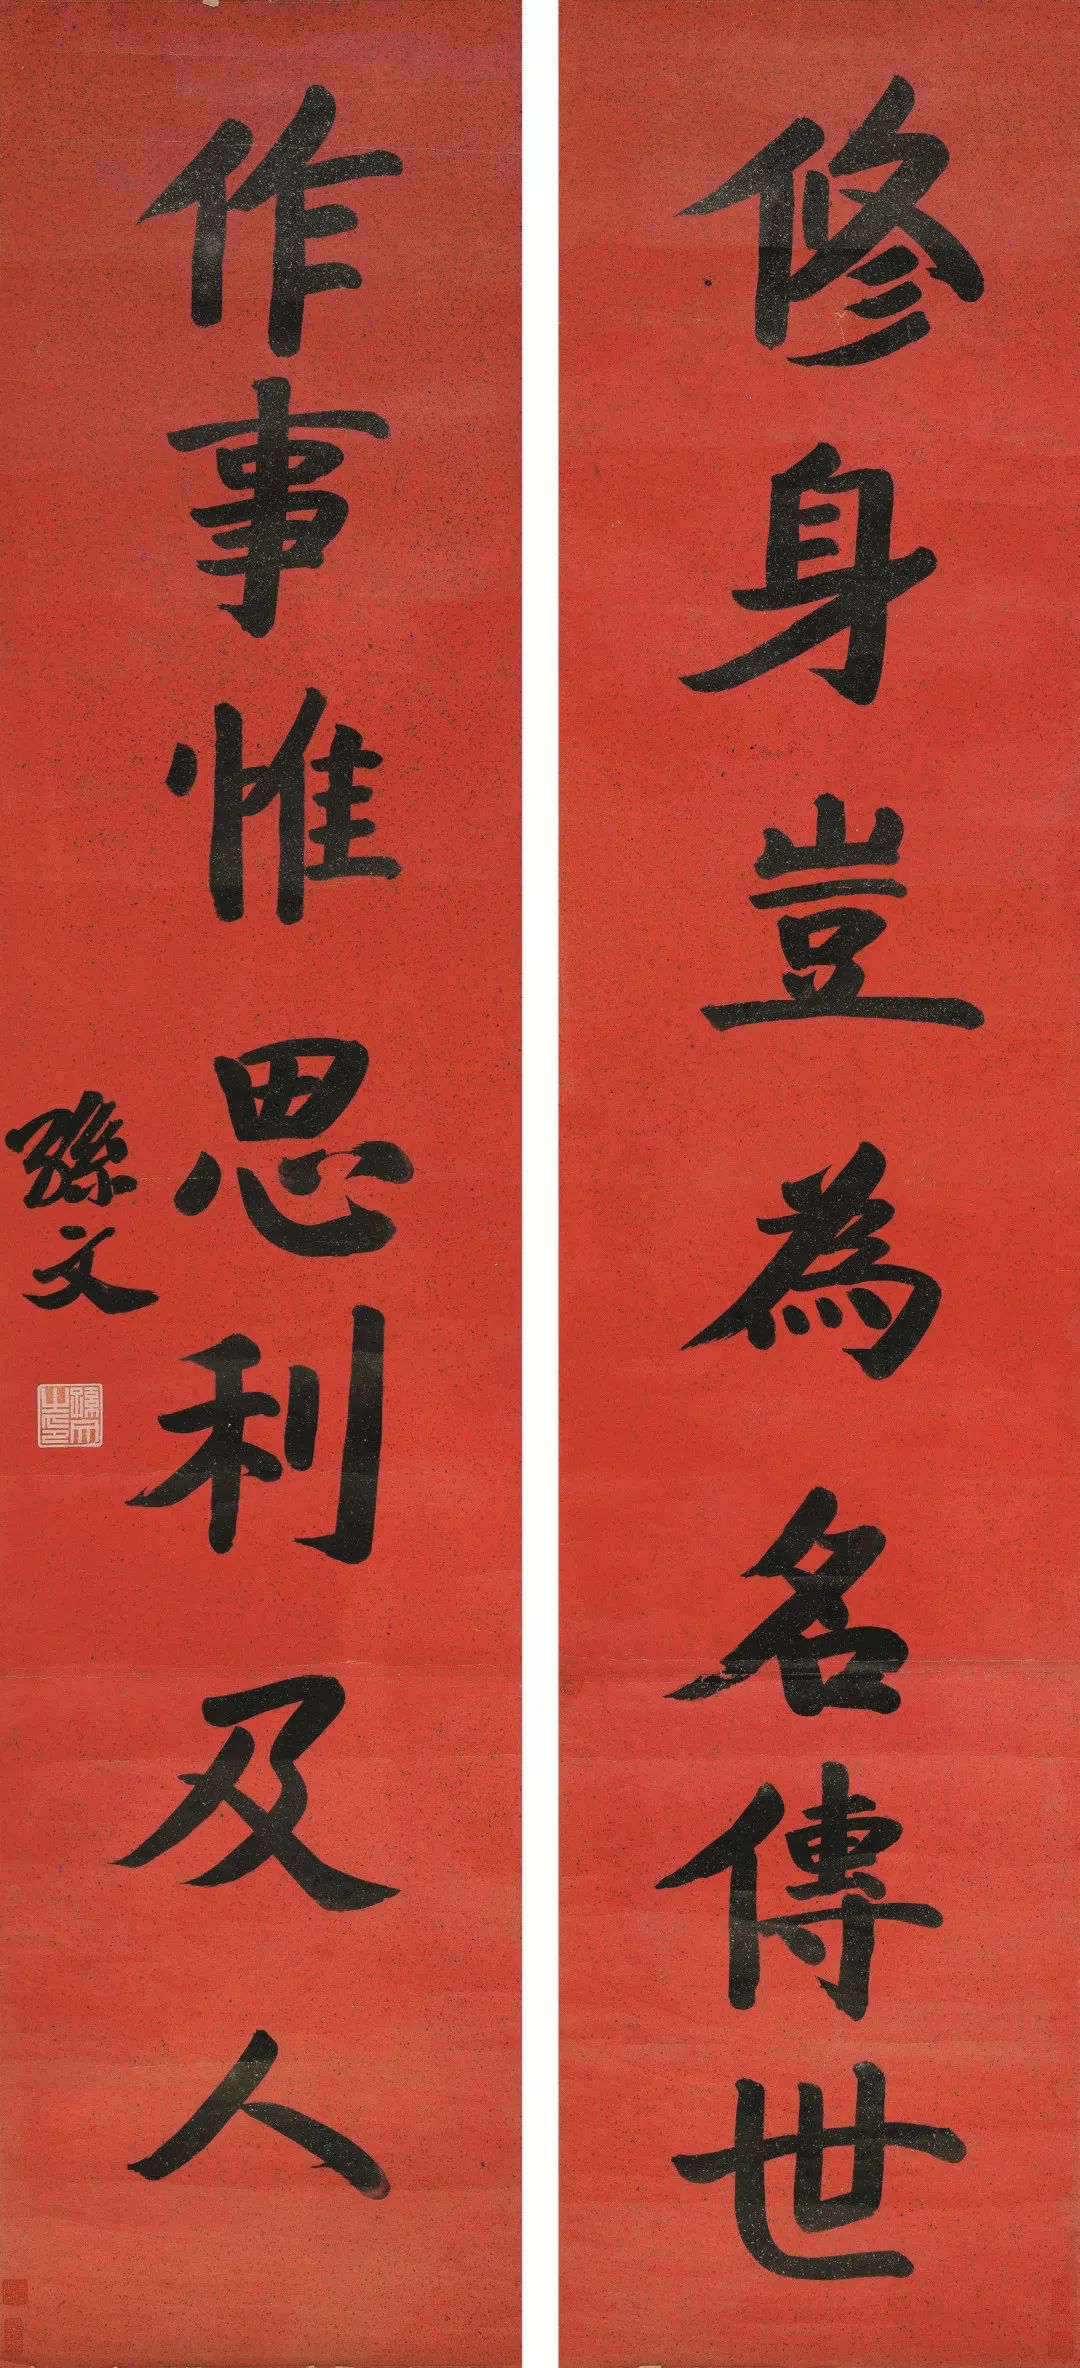 修身豈為名傳世
作事惟思利及人
孫文
孫文之印